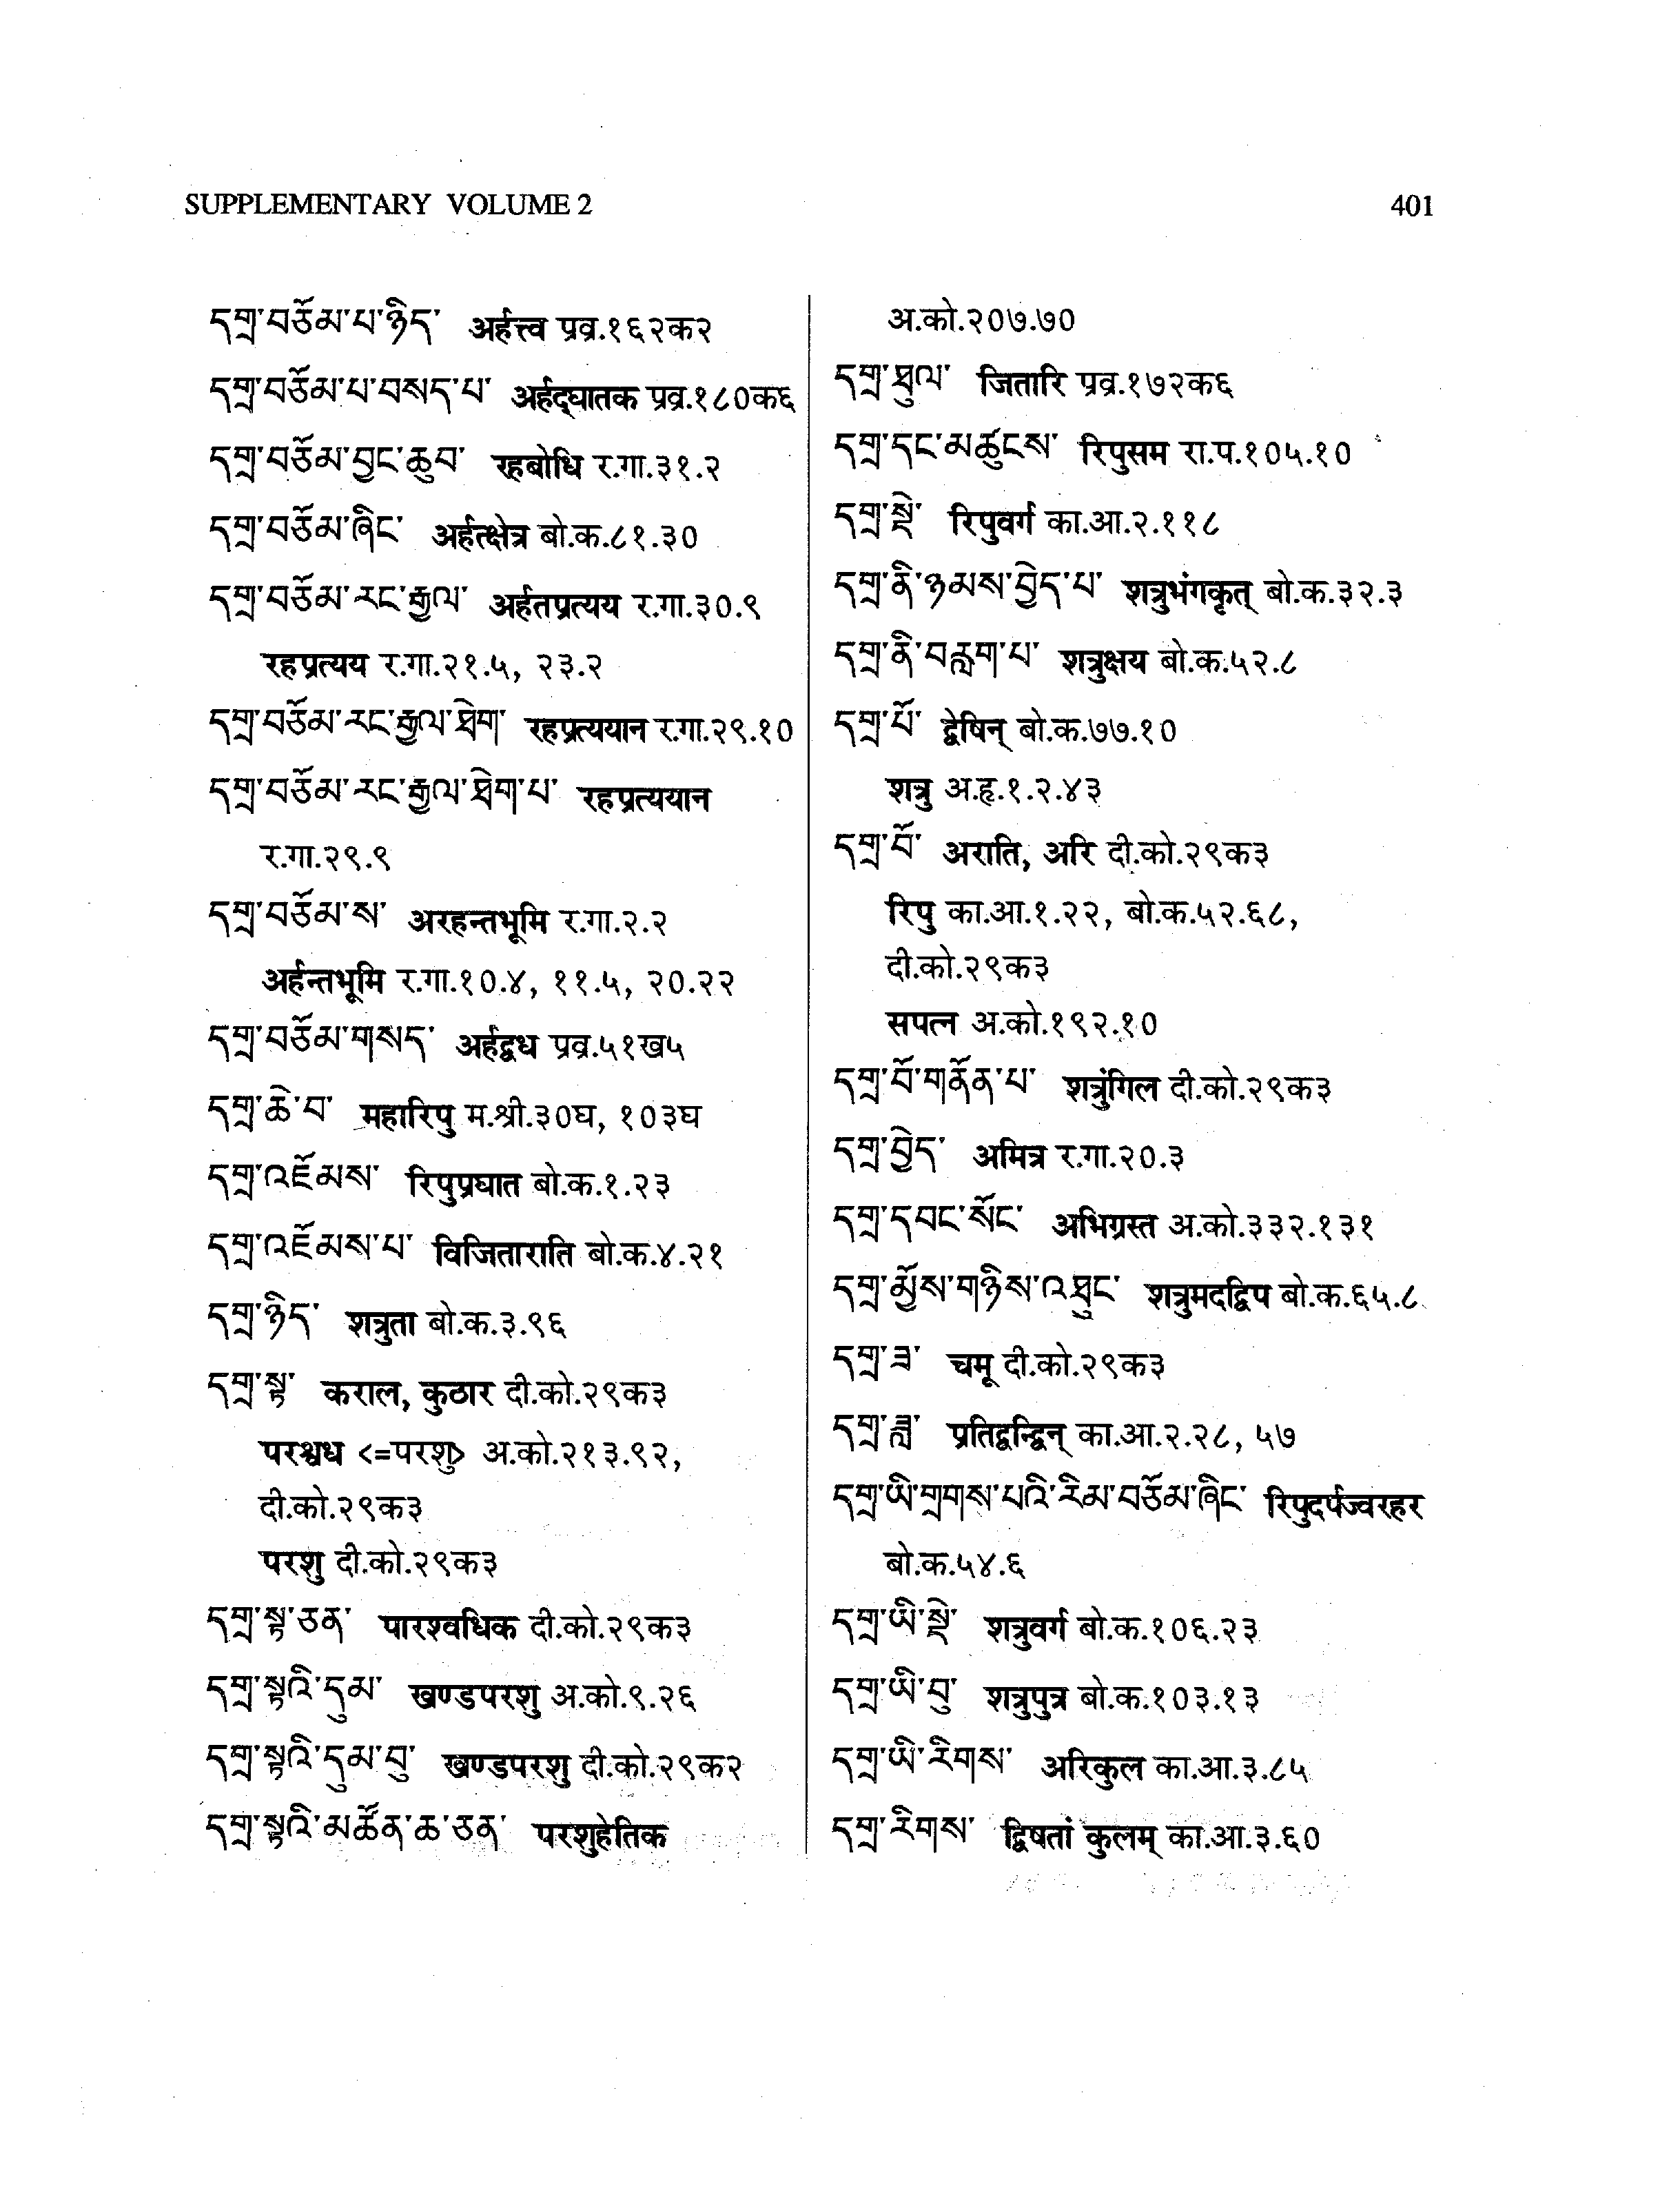 SUPPLEMENTARY VOLUME 2
401
དགྲ་བཅོམ་པ་ཉིད་ अर्हत्त्व प्रव्र.१६२क२
དགྲ་བཅོམ་པ་བསད་པ་ अर्हद्घातक प्रव्र.१८०क६
དགྲ་བཅོམ་བྱང་ཆུབ་ रहबोधि र.गा.३१.२
དགྲ་བཅོམ་ཞིང་ अर्हत्क्षेत्र बो.क.८१.३०
དགྲ་བཅོམ་རང་རྒྱལ་ अर्हतप्रत्यय र.गा.३०.९
रहप्रत्यय र.गा.२१.५, २३.२
དགྲ་བཅོམ་རང་རྒྱལ་ཐེག་ रहप्रत्ययान र.गा.२९.१०
དགྲ་བཅོམ་རང་རྒྱལ་ཐེག་པ་ रहप्रत्ययान
र.गा.२९.९
དགྲ་བཅོམ་ས་ अरहन्तभूमि र.गा.२.२
अर्हन्तभूमि र.गा.१०.४, ११.५, २०.२२
དགྲ་བཅོམ་གསད་ अर्हद्वध प्रव्र.५१ख५
དགྲ་ཆེ་བ་ महारिपु म.श्री.३०घ, १०३घ
དགྲ་འཇོམས་ रिपुप्रघात बो.क.१.२३
དགྲ་འཇོམས་པ་ विजिताराति बो.क.४.२१
དགྲ་ཉིད་ शत्रुता बो.क.३.९६
དགྲ་སྟ་ कराल, कुठार दी.को.२९क३
परश्वध <=परशु> अ.को.२१३.९२,
दी.को.२९क३
परशु दी.को.२९क३
དགྲ་སྟ་ཅན་ पारश्वधिक दी.को.२९क३
དགྲ་སྟའི་དུམ་ खण्डपरशु अ.को.९.२६
དགྲ་སྟའི་དུམ་བུ་ खण्डपरशु दी.को.२९क२
དགྲ་སྟའི་མཚོན་ཆ་ཅན་ परशुहेतिक
अ.को.२०७.७०
དགྲ་ཐུལ་ जितारि प्रव्र.१७२क६
དགྲ་དང་མཚུངས་ रिपुसम रा.प.१०५.१०
དགྲ་སྡེ་ रिपुवर्ग का.आ.२.११८
དགྲ་ནི་ཉམས་བྱེད་པ་ शत्रुभंगकृत् बो.क.३२.३
དགྲ་ནི་བརླག་པ་ शत्रुक्षय बो.क.५२.८
དགྲ་པོ་ द्वेषिन् बो.क.७७.१०
शत्रु अ.हृ.१.२.४३
དགྲ་བོ་ अराति, अरि दी.को.२९क३
रिपु का.आ.१.२२, बो.क.५२.६८,
दी.को.२९क३
सपत्न अ.को.१९२.१०
དགྲ་བོ་གནོན་པ་ शत्रुंगिल दी.को.२९क३
དགྲ་བྱེད་ अमित्र र.गा.२०.३
དགྲ་དབང་སོང་ अभिग्रस्त अ.को.३३२.१३१
དགྲ་མྱོས་གཉིས་འཐུང་ शत्रुमदद्विप बो.क.६५.८
དགྲ་ཟ་ चमू दी.को.२९क३
དགྲ་ཟླ་ प्रतिद्वन्द्विन् का.आ.२.२८, ५७
དགྲ་ཡི་གྲགས་པའི་རིམ་བཅོམ་ཞིང་ रिपुदर्पज्वरहर
बो.क.५४.६
དགྲ་ཡི་སྡེ་ शत्रुवर्ग बो.क.१०६.२३
དགྲ་ཡི་བུ་ शत्रुपुत्र बो.क.१०३.१३
དགྲ་ཡི་རིགས་ अरिकुल का.आ.३.८५
དགྲ་རིགས་ द्विषतां कुलम् का.आ.३.६०